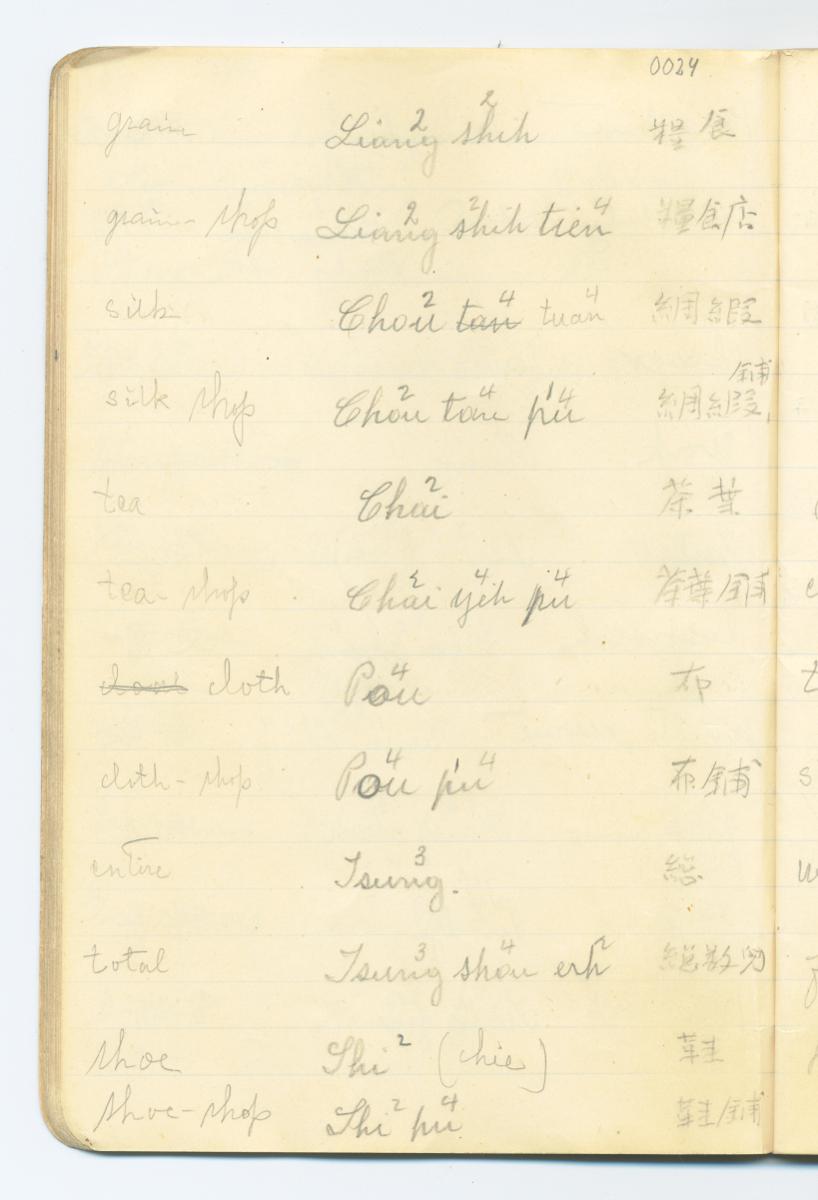 0024
grain Liang² shih² 糧食
grain-shop Liang² shih² tien⁴ 糧食店
silk Chou² tan⁴ tuan⁴ 綢緞
舖
silk shop Chou² tan⁴ p'u⁴ 綢緞
tea Chai² 茶葉
tea-shop Chai² yeh⁴ pu⁴ 茶葉舖
cloth Pou⁴ 布
cloth-shop Pou⁴ p'u⁴ 布舖
entire Tsung³. 総
total Tsung³ shou⁴ erh² 総数兒
shoe Shi² (chie) 鞋
shoe-shop Shi² pu⁴ 鞋舖